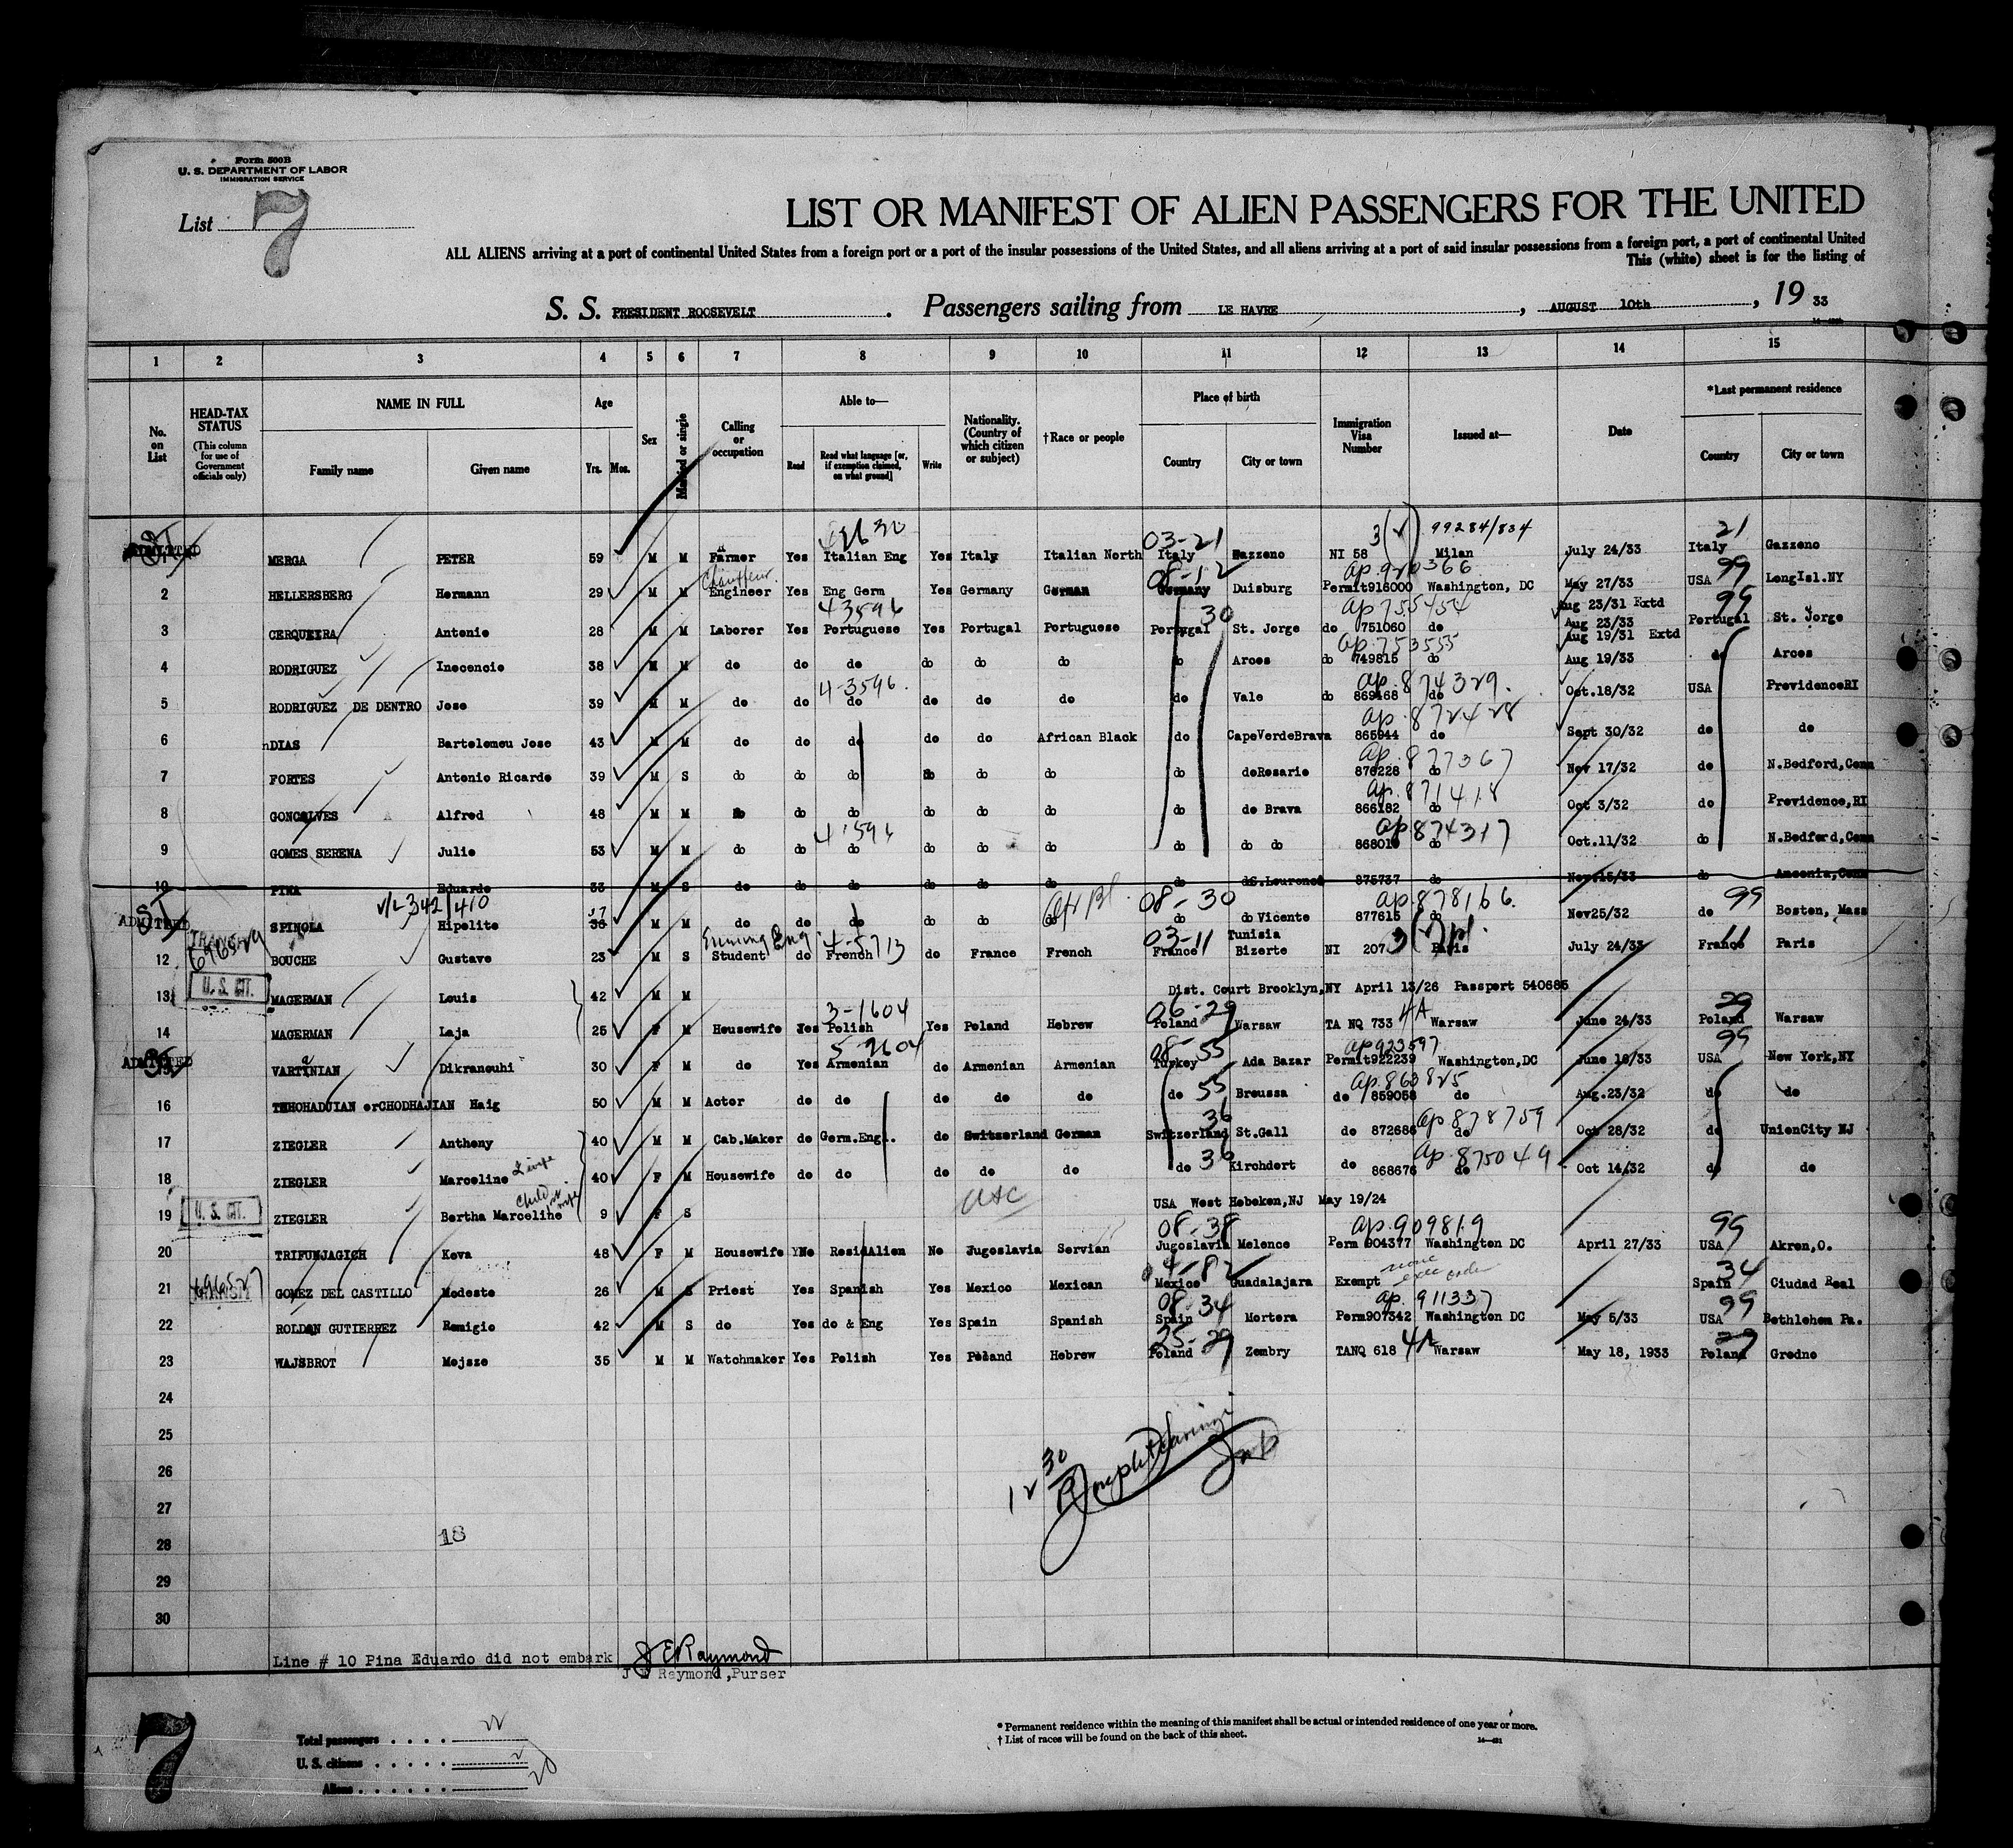 Form 500B
U. S. DEPARTMENT OF LABOR
IMMIGRATION SERVICE
List 7
LIST OR MANIFEST OF ALIEN PASSENGERS FOR THE UNITED
ALL ALIENS arriving at a port of continental United States from a foreign port or a port of the insular possessions of the United States, and all aliens arriving at a port of said insular possessions from a foreign port, a port of continental United
This (white) sheet is for the listing of
S. S. PRESIDENT ROOSEVELT . Passengers sailing from LE HAVRE , AUGUST 10th , 19 33
1 2 3 4 5 6 7 8 9 10 11 12 13 14 15
No. on List
HEAD-TAX STATUS (This column for use of Government officials only)
NAME IN FULL Family name Given name
Age Yrs. Mos.
Sex
Married or single
Calling or occupation
Able to— Read Read what language [or, if exemption claimed, on what ground] Write
Nationality. (Country of which citizen or subject)
† Race or people
Place of birth Country City or town
Immigration Visa Number
Issued at—
Date
*Last permanent residence Country City or town
42630 03-21 3(√) 99284/834 21
ADMITTED MERGA PETER 59 M M Farmer Yes Italian Eng Yes Italy Italian North Italy Gazzeno NI 58 Milan July 24/33 Italy Gazzeno
Chauffeur 08-12 ap 920366 99
2 HELLERSBERG Hermann 29 M M Engineer Yes Eng Germ Yes Germany German Germany Duisburg Permit916000 Washington, DC May 27/33 USA LongIsl.NY
43596 30 ap 755454 Aug 23/31 Extd 99
3 CERQUEIRA Antonio 28 M M Laborer Yes Portuguese Yes Portugal Portuguese Portugal St. Jorge do 751060 do Aug 23/33 Portugal St. Jorge
ap. 753555 Aug 19/31 Extd
4 RODRIGUEZ Inocencio 38 M M do do do do do do do Arcos do 749815 do Aug 19/33 do Arcos
4-3596. ap. 874329.
5 RODRIGUEZ DE DENTRO Jose 39 M M do do do do do do do Vale do 869468 do Oct.18/32 USA ProvidenceRI
ap. 872428
6 DIAS Bartolomeu Jose 43 M M do do do do do African Black do CapeVerdeBrava 865944 do Sept 30/32 do do
ap. 877367
7 FORTES Antonio Ricardo 39 M S do do do do do do do doRosario 876228 do Nov 17/32 do N.Bedford,Conn
ap. 871418
8 GONCALVES Alfred 48 M M do do do do do do do do Brava 866182 do Oct 3/32 do Providence,RI
ap 874317
9 GOMES SERENA Julio 53 M M do do do do do do do do do 868010 do Oct.11/32 do N.Bedford,Conn
10 PINA Eduardo 33 M S do do do do do do do doS.Lourenco 875737 do Nov.15/33 do Ansonia,Conn
V/L-342/410 37 Afr Bl. 08-30 ap. 878166. 99
ADMITTED SPINOLA Hipolito 38 M M do do do do do do do do Vicente 877615 do Nov25/32 do Boston, Mass
TRANSIT 696529 4-5713 03-11 Tunisia
12 BOUCHE Gustave 23 M S Student do French do France French France Bizerte NI 207 Paris July 24/33 France Paris
U. S. CIT.
13 MAGERMAN Louis 42 M M Dist. Court Brooklyn,NY April 13/26 Passport 540685
3-1604 06-29 4A 29
14 MAGERMAN Laja 25 F M Housewife Yes Polish Yes Poland Hebrew Poland Warsaw TA NQ 733 Warsaw June 24/33 Poland Warsaw
08-55 ap 923597 99
ADMITTED VARTINIAN Dikranouhi 30 F M do Yes Armenian do Armenian Armenian Turkey Ada Bazar Permit922239 Washington,DC June 16/33 USA New York,NY
55 ap. 863825
16 TEHOHADJIAN orCHODHAJIAN Haig 50 M M Actor do do do do do do Broussa do 859058 do Aug.23/32 do do
36 ap 878759
17 ZIEGLER Anthony 40 M M Cab.Maker do Germ.Engl. do Switzerland German Switzerland St.Gall do 872686 do Oct 28/32 do UnionCity NJ
36 ap. 875049
18 ZIEGLER Marceline 40 F M Housewife do do do do do do Kirchdort do 868676 do Oct 14/32 do do
U. S. CIT. Child
19 ZIEGLER Bertha Marceline 9 F S USA West Hoboken,NJ May 19/24
08-38 ap. 909819 99
20 TRIFUNJAGICH Keva 48 F M Housewife No ResidAlien No Jugoslavia Servian Jugoslavia Melence Perm 904377 Washington DC April 27/33 USA Akron,O.
696527 none 34
21 GOMEZ DEL CASTILLO Modesto 26 M S Priest Yes Spanish Yes Mexico Mexican Mexico Guadalajara Exempt Spain Ciudad Real
08-34 ap. 911337 99
22 ROLDAN GUTIERREZ Remigio 42 M S do Yes do & Eng Yes Spain Spanish Spain Mortera Perm907342 Washington DC May 5/33 USA Bethlehem Pa.
25-29 4A 29
23 WAJSBROT Mojsze 35 M M Watchmaker Yes Polish Yes Poland Hebrew Poland Zembry TANQ 618 Warsaw May 18, 1933 Poland Grodno
24
25
26
27
18
28
29
30
Line # 10 Pina Eduardo did not embark J E Raymond
J E Raymond,Purser
7
Total passengers . . . . 22
U. S. citizens . . . . . 2
Aliens . . . . . . 20
* Permanent residence within the meaning of this manifest shall be actual or intended residence of one year or more.
† List of races will be found on the back of this sheet.